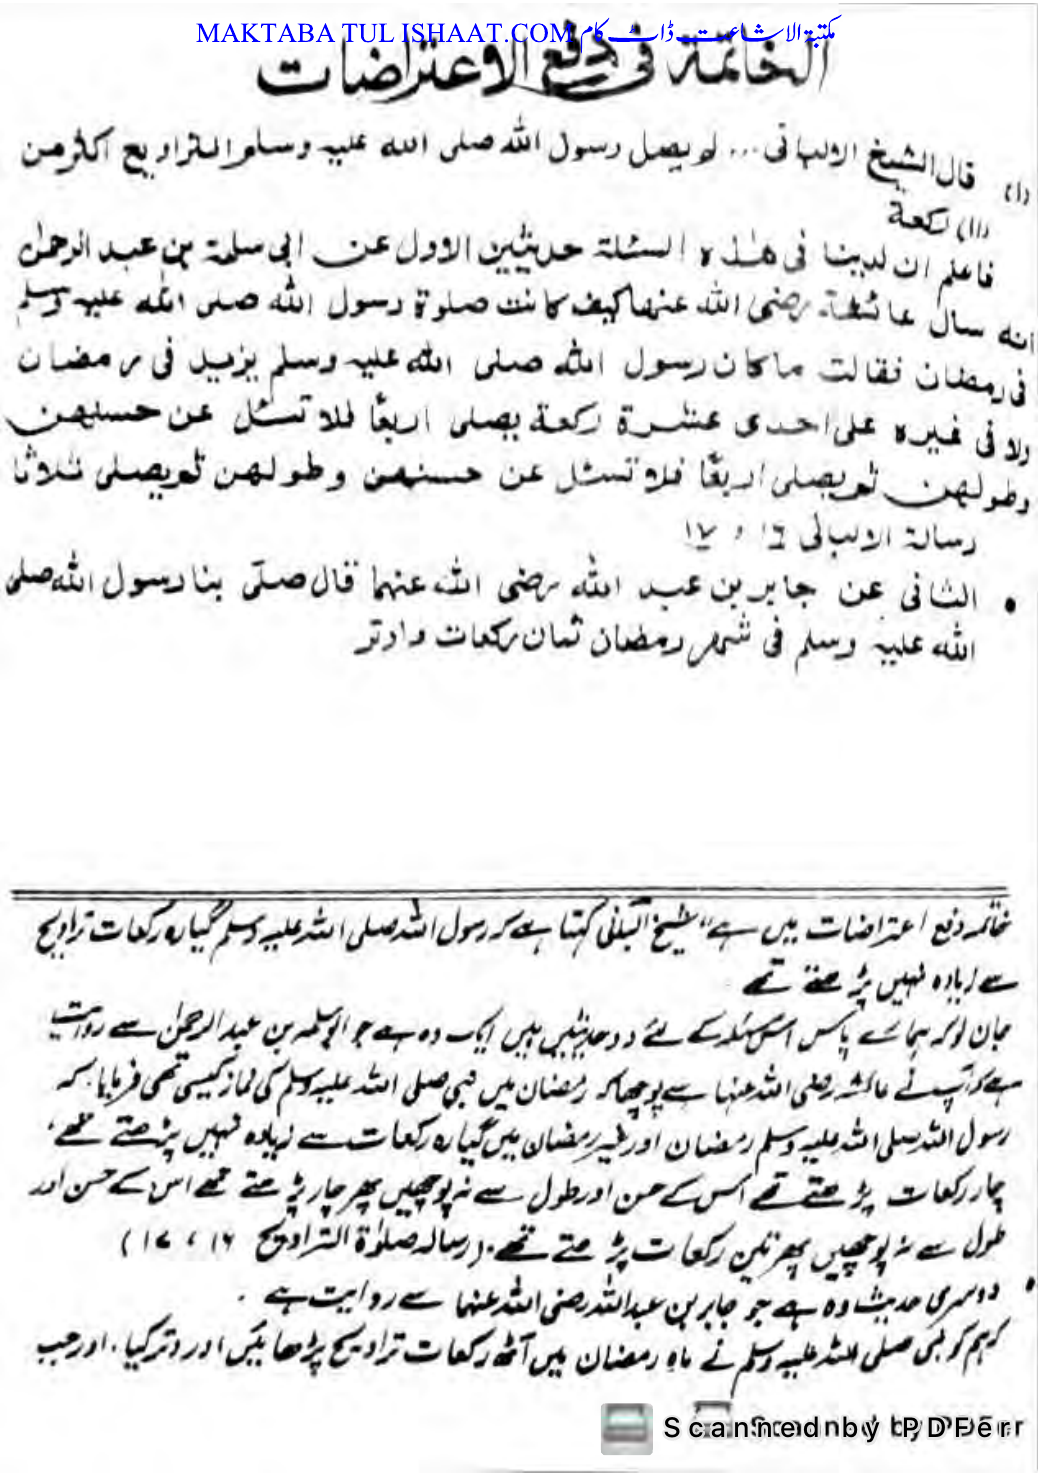 MAKTABA TUL ISHAAT.COM مکتبۃ الاشاعت ڈاٹ کام
الخاتمة فی دفع الاعتراضات
(۱) قال الشیخ الالبانی ... لم یصل رسول الله صلی الله علیه وسلم التراویح اکثر من
(۱۱) رکعة
فاعلم ان لدینا فی هذه المسئلة حدیثین الاول عن ابی سلمة بن عبد الرحمن
انه سال عائشة رضی الله عنها کیف کانت صلوة رسول الله صلی الله علیه وسلم
فی رمضان فقالت ما کان رسول الله صلی الله علیه وسلم یزید فی رمضان
ولا فی غیره علی احدی عشرة رکعة یصلی اربعًا فلا تسئل عن حسنهن
وطولهن ثم یصلی اربعًا فلا تسئل عن حسنهن وطولهن ثم یصلی ثلاثا
رسالة الالبانی ۱۶ ، ۱۷
• الثانی عن جابر بن عبد الله رضی الله عنهما قال صلّی بنا رسول الله صلی
الله علیه وسلم فی شهر رمضان ثمان رکعات واوتر
خاتمہ دفع اعتراضات میں ہے "شیخ البانی کہتا ہے کہ رسول اللہ صلی اللہ علیہ وسلم گیارہ رکعات تراویح
سے زیادہ نہیں پڑھتے تھے
جان لو کہ ہمارے پاس اس مسئلہ کے لئے دو حدیثیں ہیں ایک وہ ہے جو ابوسلمہ بن عبدالرحمٰن سے روایت
ہے کہ آپ نے عائشہ رضی اللہ عنہا سے پوچھا کہ رمضان میں نبی صلی اللہ علیہ وسلم کی نماز کیسی تھی فرمایا، کہ
رسول اللہ صلی اللہ علیہ وسلم رمضان اور غیر رمضان میں گیارہ رکعات سے زیادہ نہیں پڑھتے تھے،
چار رکعات پڑھتے تھے اس کے حسن اور طول سے نہ پوچھیں پھر چار پڑھتے تھے اس کے حسن اور
طول سے نہ پوچھیں پھر تین رکعات پڑھتے تھے۔ (رسالہ صلوٰۃ التراویح ۱۶ ، ۱۷)
• دوسری حدیث وہ ہے جو جابر بن عبداللہ رضی اللہ عنہما سے روایت ہے۔
کہ ہم کو نبی صلی اللہ علیہ وسلم نے ماہِ رمضان میں آٹھ رکعات تراویح پڑھائیں اور وتر کیا، اور جب